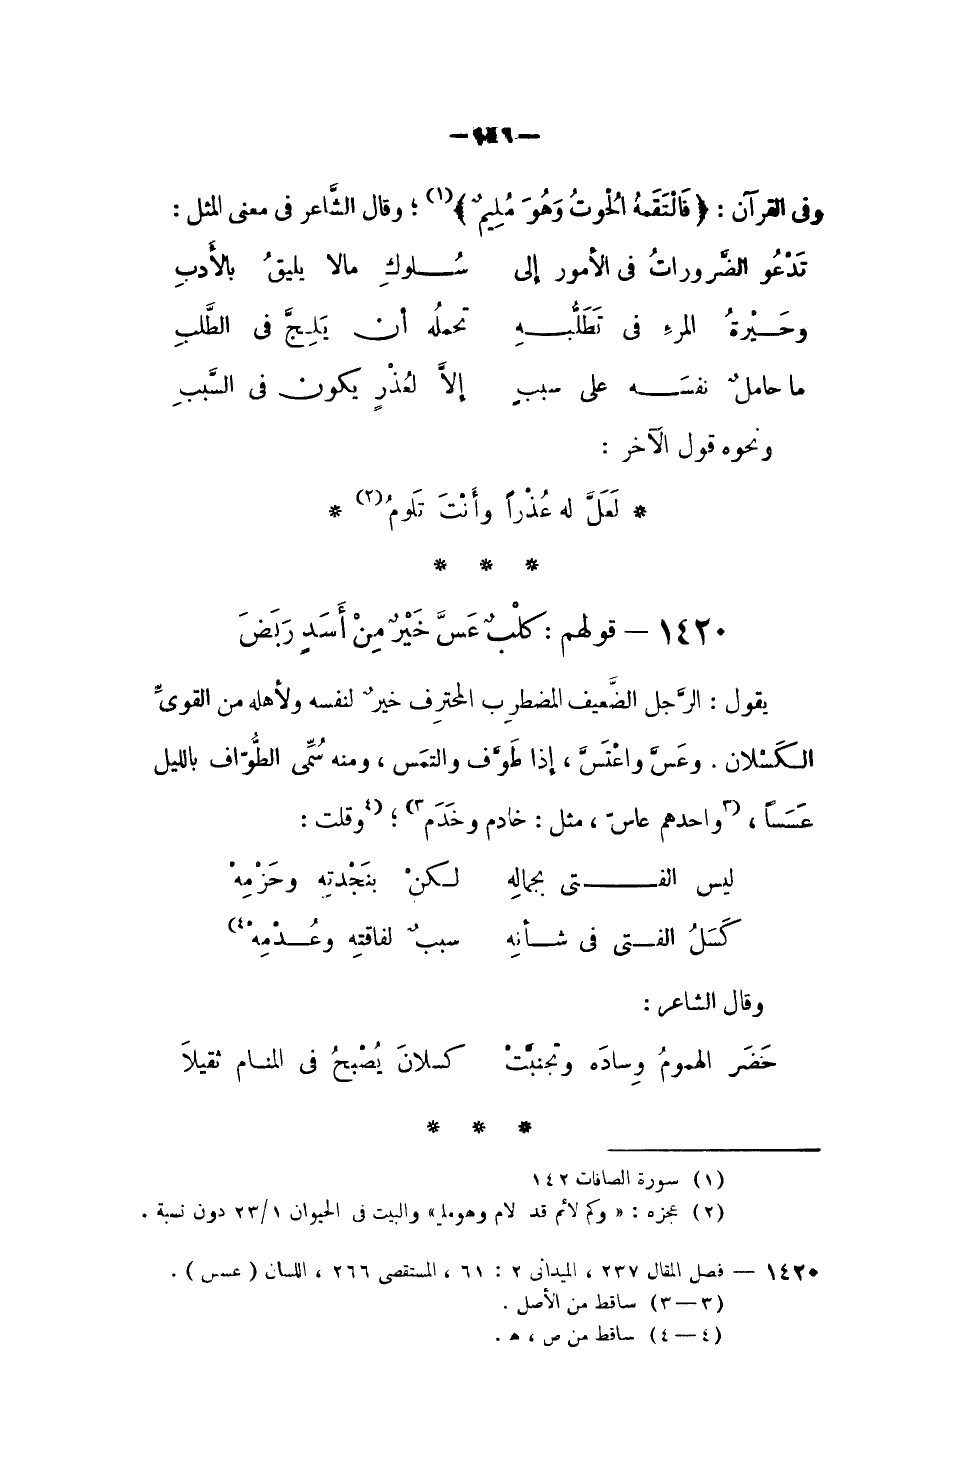 — ١٤٦ —
وفى القرآن : ﴿ فَالْتَقَمَهُ الْحُوتُ وَهُوَ مُلِيمٌ ﴾(١) ؛ وقال الشَّاعر فى معنى المثل :
تَدْعُو الضَّروراتُ فى الأمور إلى سُلوكِ مالا يليقُ بالأَدبِ
وحَيْرةُ المرءِ فى تَطَلُّبهِ تحملُه أن يَلِجَّ فى الطَّلبِ
ما حاملٌ نفسَه على سببٍ إلاَّ لعُذْرٍ يكون فى السَّببِ
ونحوه قول الآخر :
* لَعَلَّ له عُذْراً وأَنْتَ تَلومُ(٢) *
* * *
١٤٢٠ — قولهم : كلْبٌ عَسَّ خَيْرٌ مِنْ أَسَدٍ رَبَضَ
يقول : الرَّجل الضَّعيف المضطرِب المحترِف خيرٌ لنفسه ولأهله من القوىِّ
الكَسْلان . وعَسَّ واعْتَسَّ ، إذا طَوَّف والتمَس ، ومنه سُمِّى الطُّوّاف بالليل
عَسَساً ، (٣واحدهم عاسّ ، مثل : خادم وخَدَم٣) ؛ (٤وقلت :
ليس الفتى بجمالِه لكنْ بنَجْدتِه وحَزْمِهْ
كَسَلُ الفتى فى شأنِه سببٌ لفاقتِه وعُدْمِهْ٤)
وقال الشاعر :
حَضَر الهمومُ وِسادَه وتجنبَّتْ كسلانَ يُصْبحُ فى المنام ثقيلاَ
* * *
(١) سورة الصافات ١٤٢
(٢) عجزه : « وكم لائم قد لام وهو مليم » والبيت فى الحيوان ١/٢٣ دون نسبة .
١٤٢٠ — فصل المقال ٢٣٧ ، الميدانى ٢ : ٦١ ، المستقصى ٢٦٦ ، اللسان ( عسس ) .
(٣—٣) ساقط من الأصل .
(٤—٤) ساقط من ص ، ه .